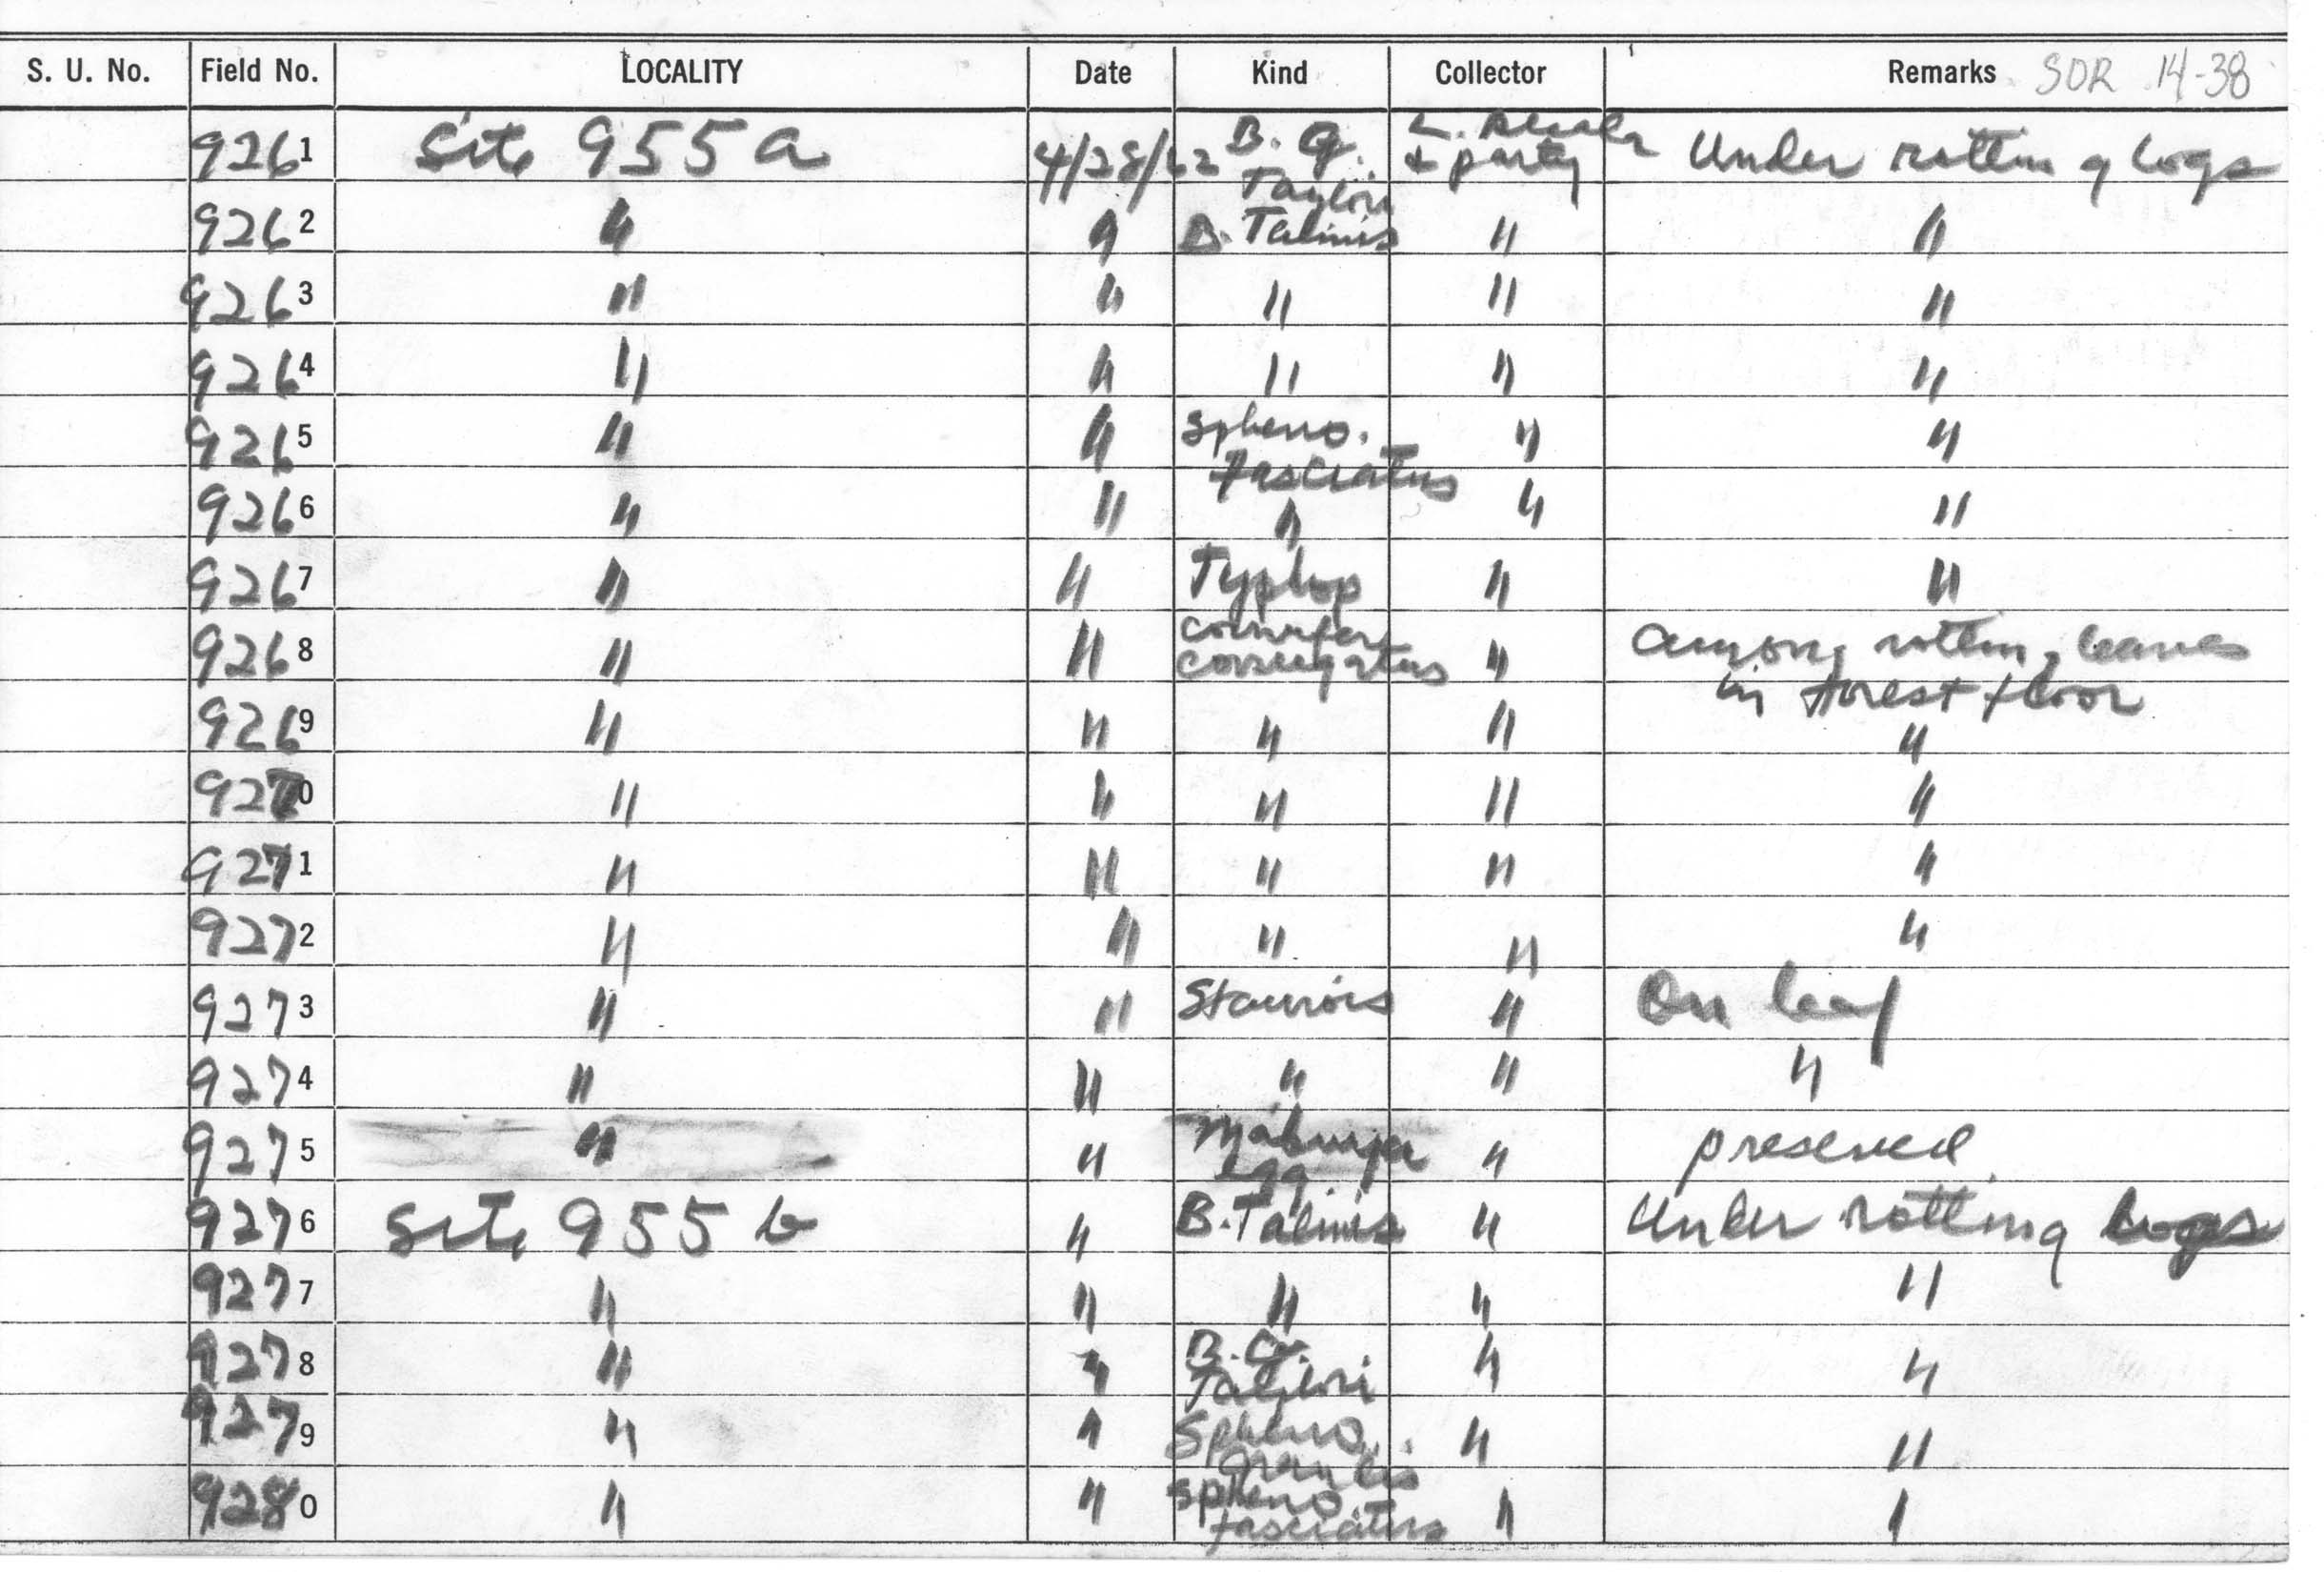 S. U. No. Field No. LOCALITY Date Kind Collector Remarks SOR 14-38
9261 Site 955a 4/28/62 B. G. Taylori L. Alcala & party Under rotting logs
9262 " " B. Talinis " "
9263 " " " " "
9264 " " " " "
9265 " " Spheno. fasciatus " "
9266 " " " " "
9267 " " Typhlop " "
9268 " " Cornufer " among rotting leaves in forest floor
9269 " " " " "
9270 " " " " "
9271 " " " " "
9272 " " " " "
9273 " " Staurois " On leaf
9274 " " " " "
9275 " " Mabuya egg " preserved
9276 Site 955 b " B. Talinis " Under rotting logs
9277 " " " " "
9278 " " B. G. Taylori " "
9279 " " Spheno. " "
9280 " " Spheno. fasciatus " "